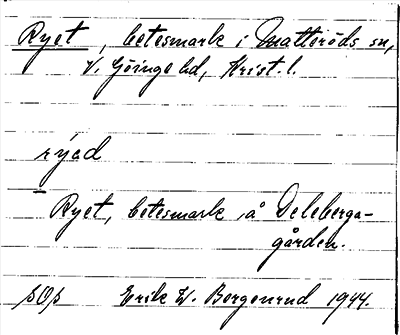 Ryet, betesmark i Matteröds sn,
V. Göinge hd, Krist. l.
rýed
Ryet, betesmark å Deleberga-
gården.
Erik W. Borgenrud 1944.